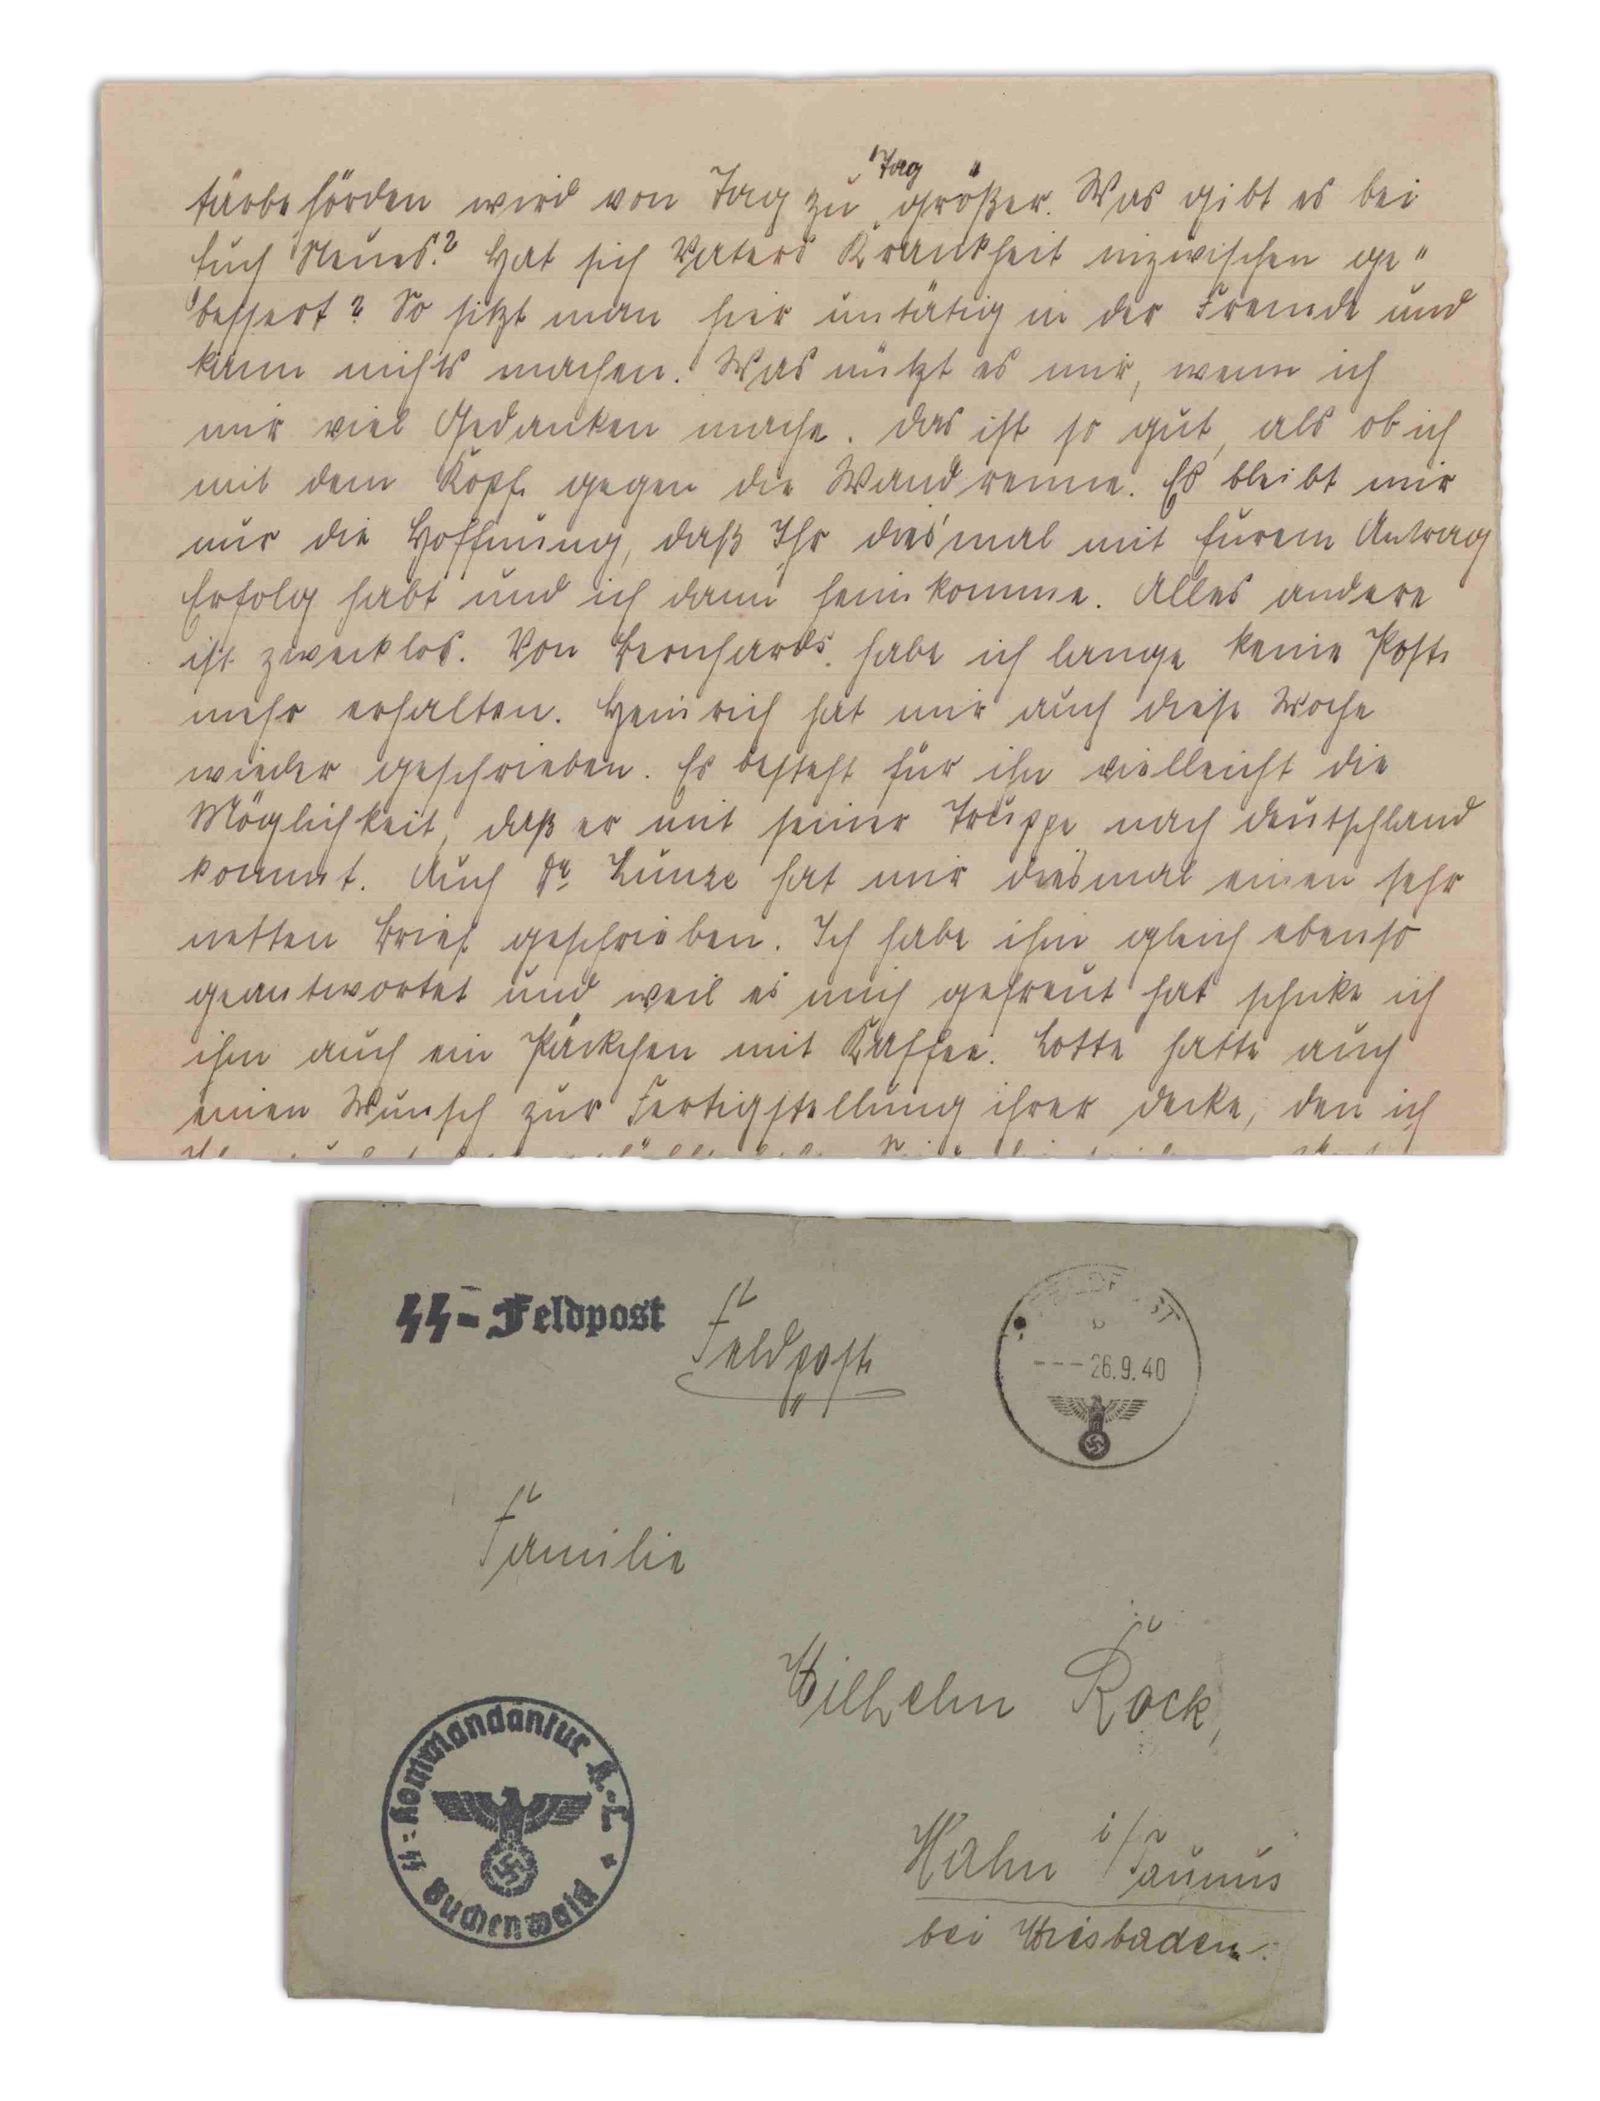 tärbehörden wird von Tag zu Tag größer. Was gibt es bei
Euch Neues? Hat sich Vaters Krankheit inzwischen ge"
bessert? So sitzt man hier untätig in der Fremde und
kann nichts machen. Was nützt es mir, wenn ich
mir viel Gedanken mache. Das ist so gut, als ob ich
mit dem Kopf gegen die Wand renne. Es bleibt mir
nur die Hoffnung, daß Ihr diesmal mit Eurem Antrag
Erfolg habt und ich dann heimkomme. Alles andere
ist zwecklos. Von Bernhards habe ich lange keine Post
mehr erhalten. Heinrich hat mir auch diese Woche
wieder geschrieben. Es besteht für ihn vielleicht die
Möglichkeit, daß er mit seiner Truppe nach Deutschland
kommt. Auch Dr. Kunze hat mir diesmal einen sehr
netten Brief geschrieben. Ich habe ihm gleich ebenso
geantwortet und weil es mich gefreut hat schicke ich
ihm auch ein Päckchen mit Kaffee. Lotte hatte auch
einen Wunsch zur Fertigstellung ihrer Decke, den ich
SS-Feldpost
Feldpost
FELDPOST
b
---26.9.40
Familie
Wilhelm Röck,
SS-Kommandantur K.-L.
Buchenwald
Hahn i/Taunus
bei Wiesbaden.